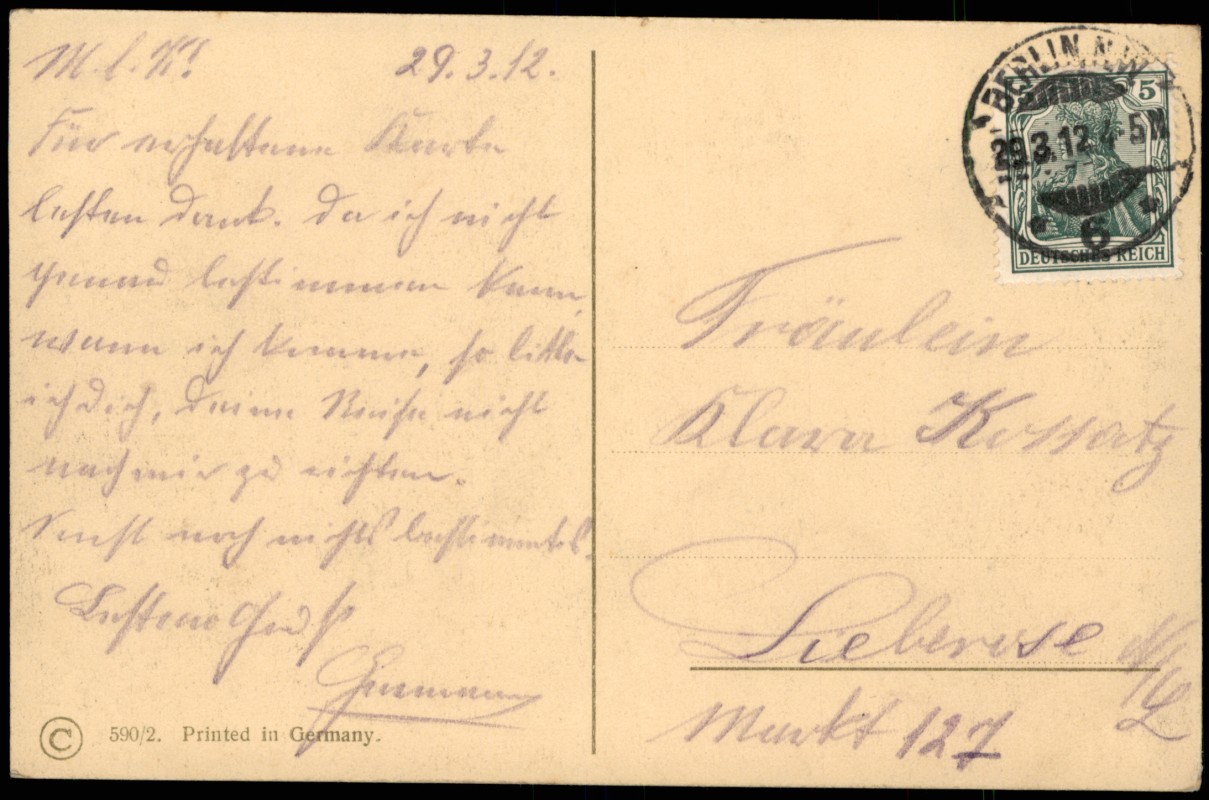 M. l. K!
29. 3. 12.
Für erhaltene Karte
besten Dank. Da ich nicht
genau bestimmen kann,
wann ich komme, so bitte
ich dich, deine Reise nicht
nach mir zu richten.
Sonst noch nichts bestimmtes.
Besten Gruß
Hermann
© 590/2. Printed in Germany.
BERLIN N.W.
29.3.12. 4-5N
6
5
DEUTSCHES REICH
Fräulein
Klara Kossatz
Lieberose N/L
Markt 127